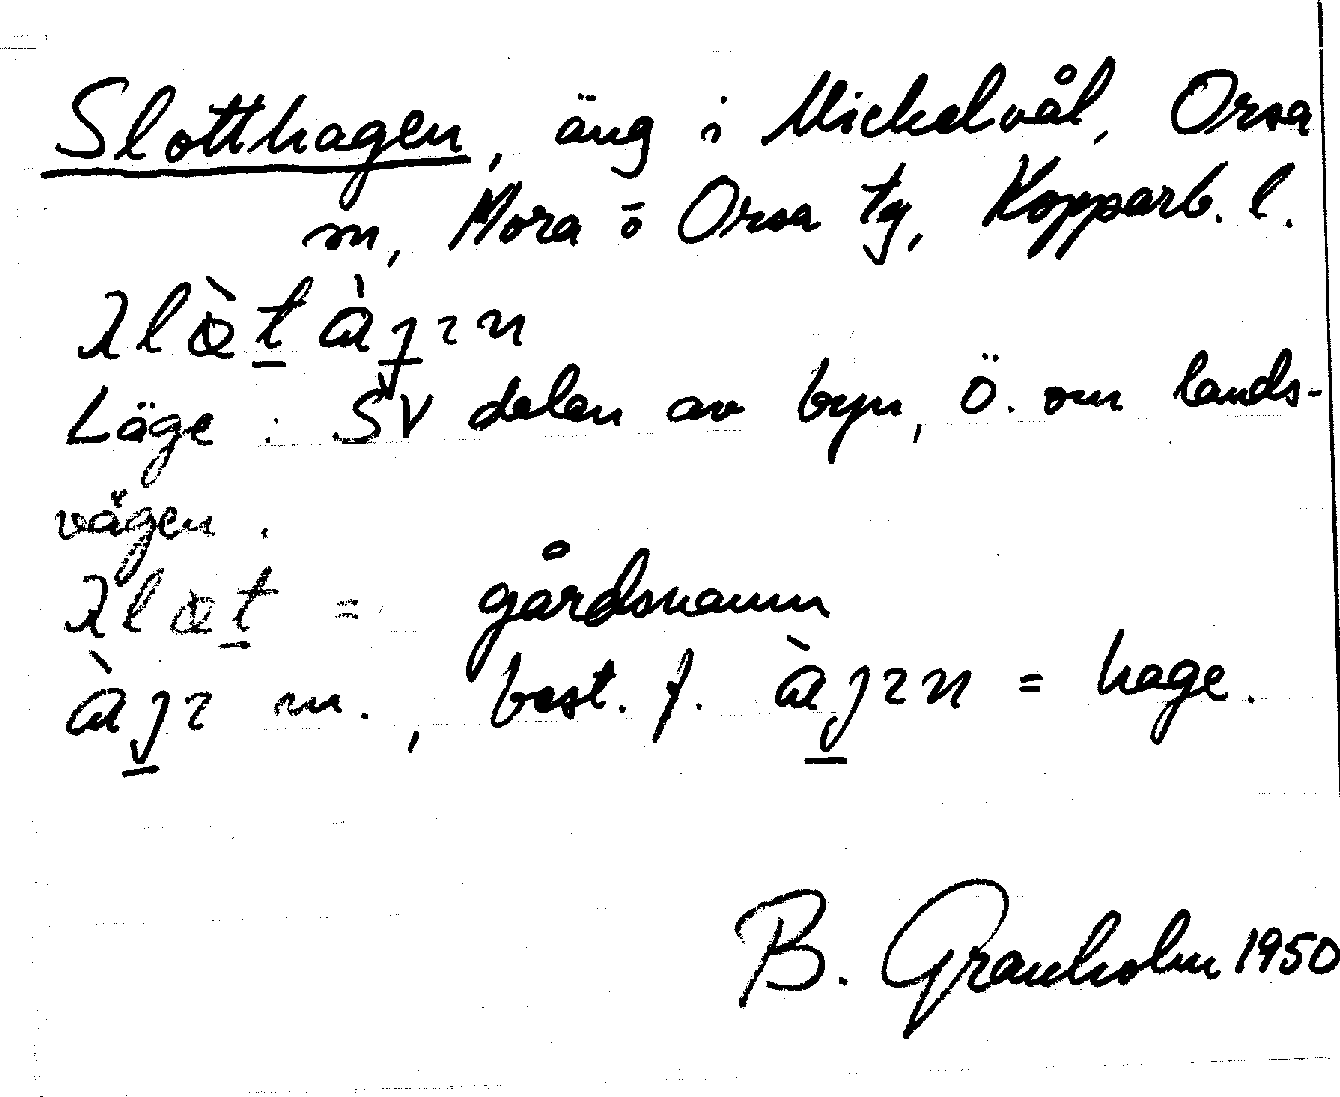 Slotthagen, äng i Mickelvål, Orsa
m, Mora o Orsa tg, Kopparb. l.
Läge: SV delen av byn, Ö. om lands-
vägen.
= gårdsnamn
m., best. f. = hage.
B. Granholm 1950